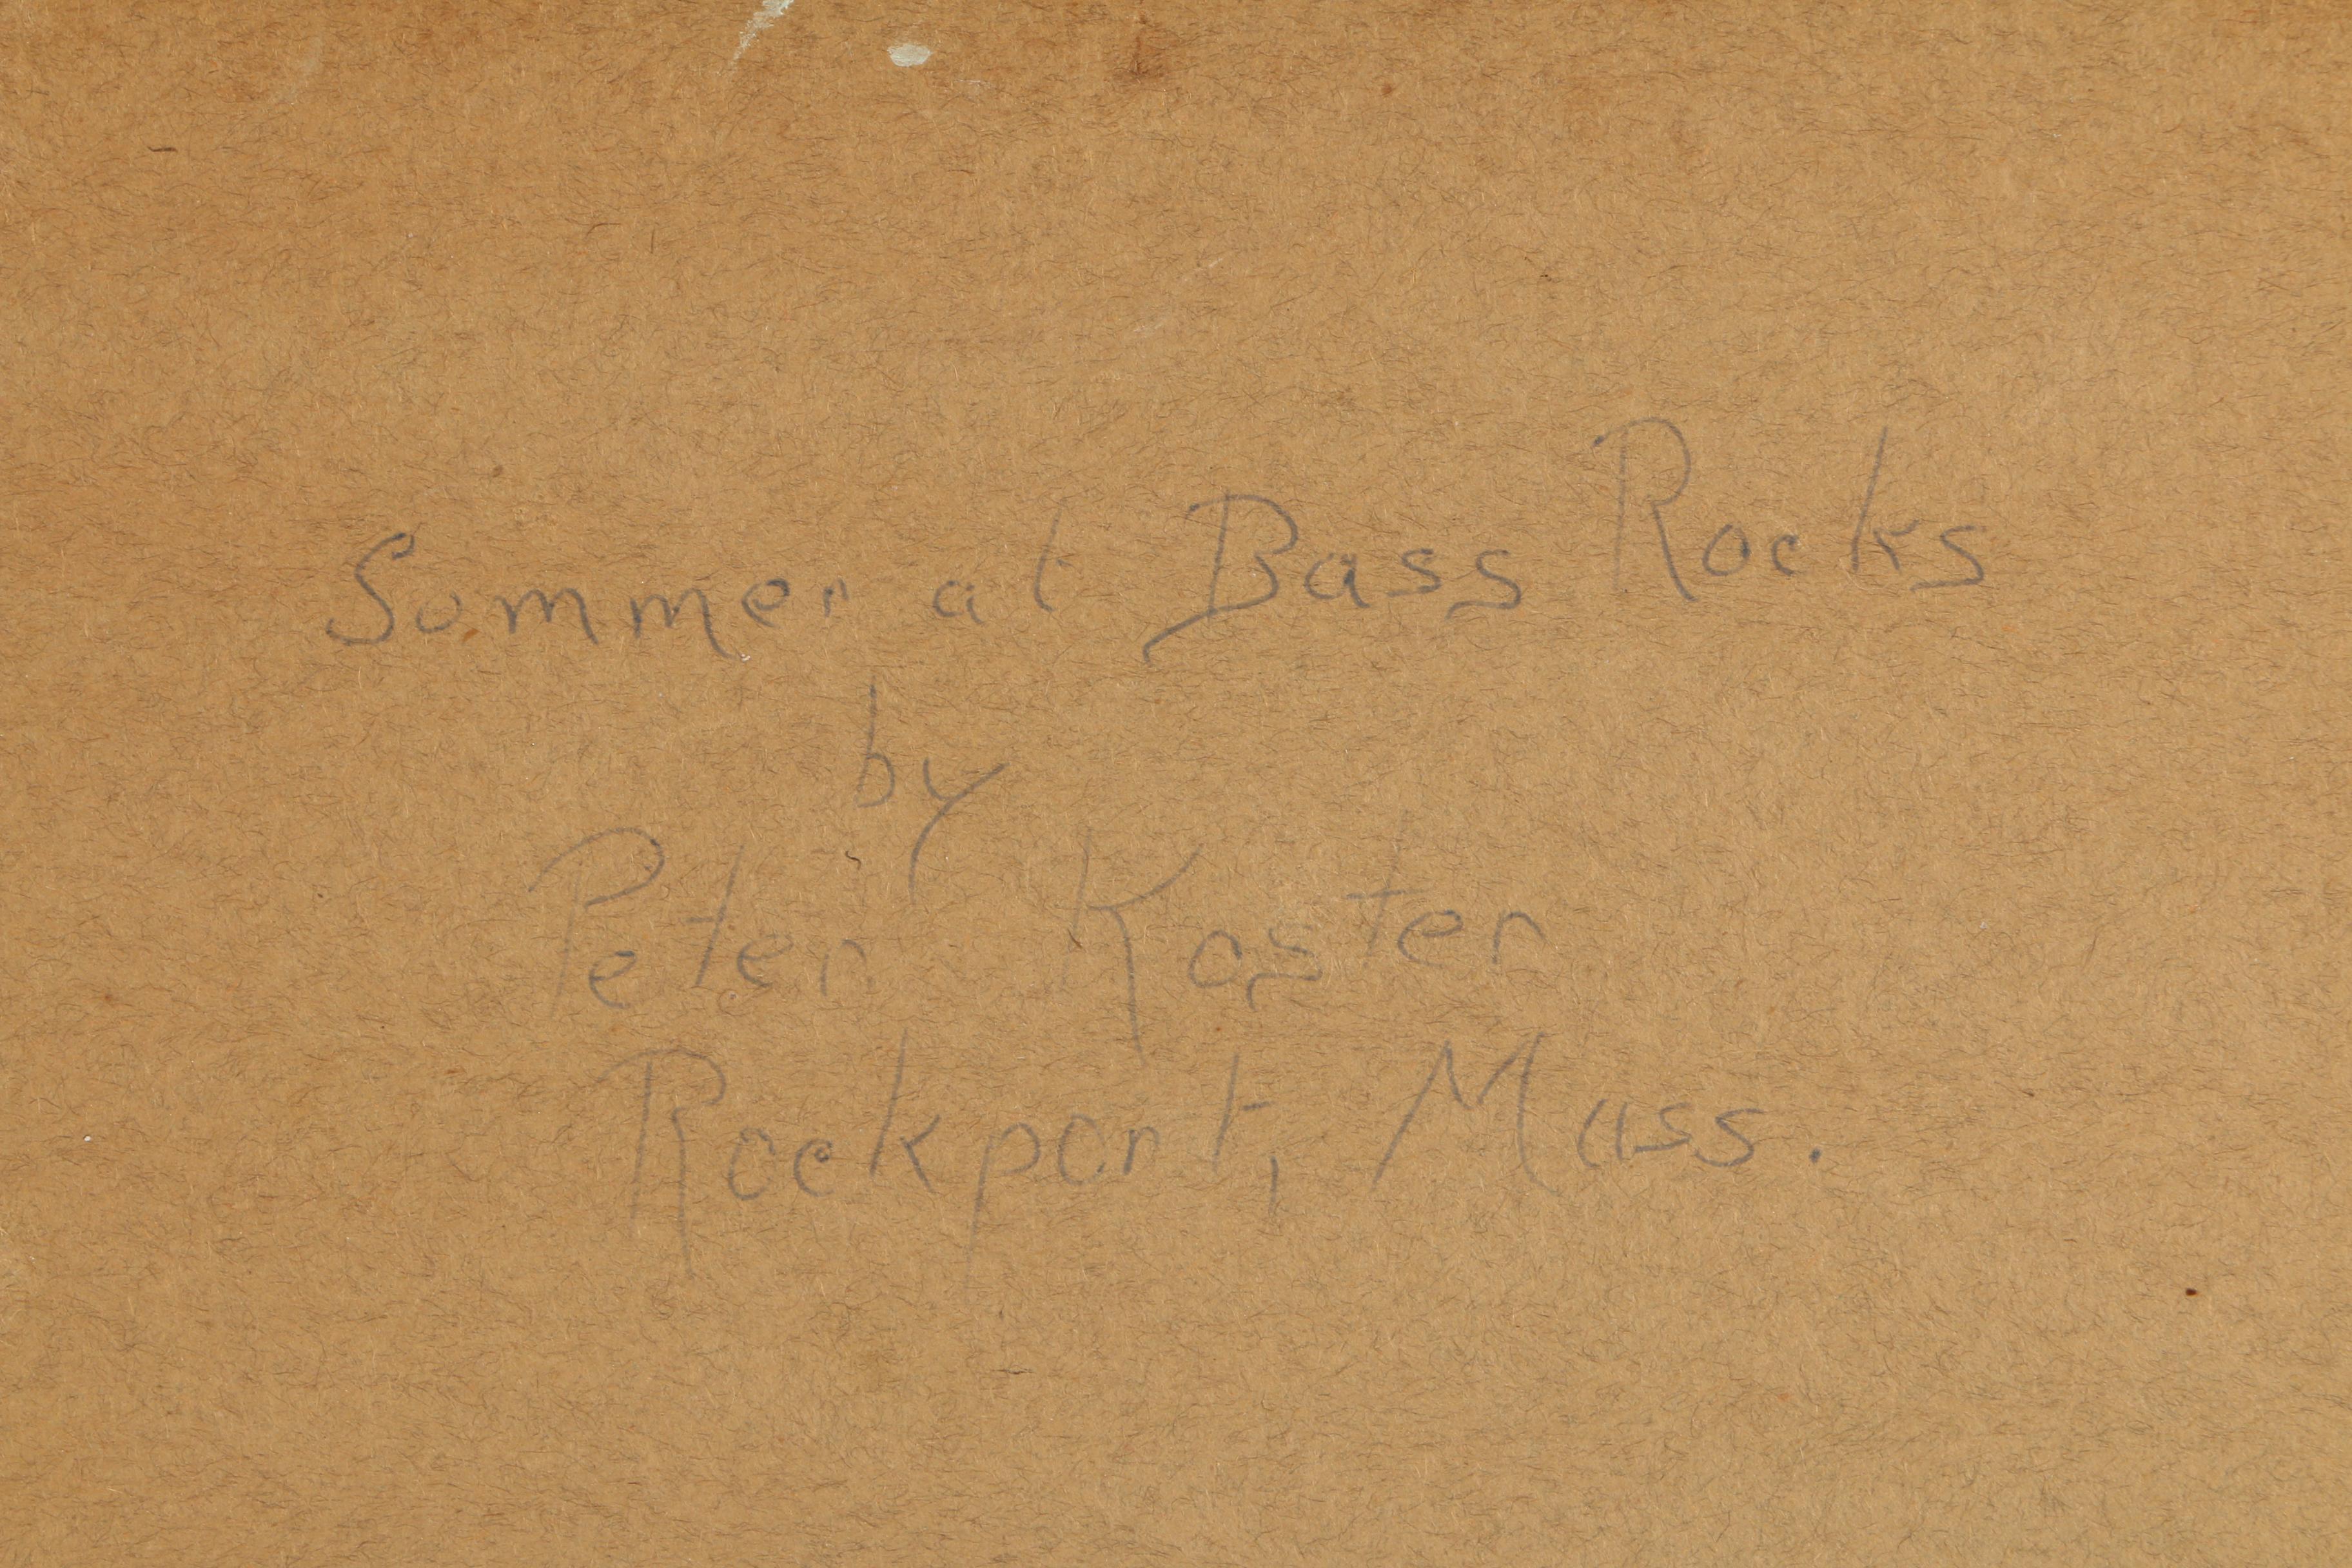 Summer at Bass Rocks
by
Peter Koster
Rockport, Mass.